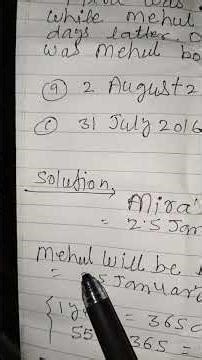 while mehul
days latter. O
was mehul bo
(a) 2 August 2
(c) 31 July 2016
Solution,
Mira's
= 2.5 Jan
mehul will be
= 5 Januar
{ 1 y = 365 d
55 365 =